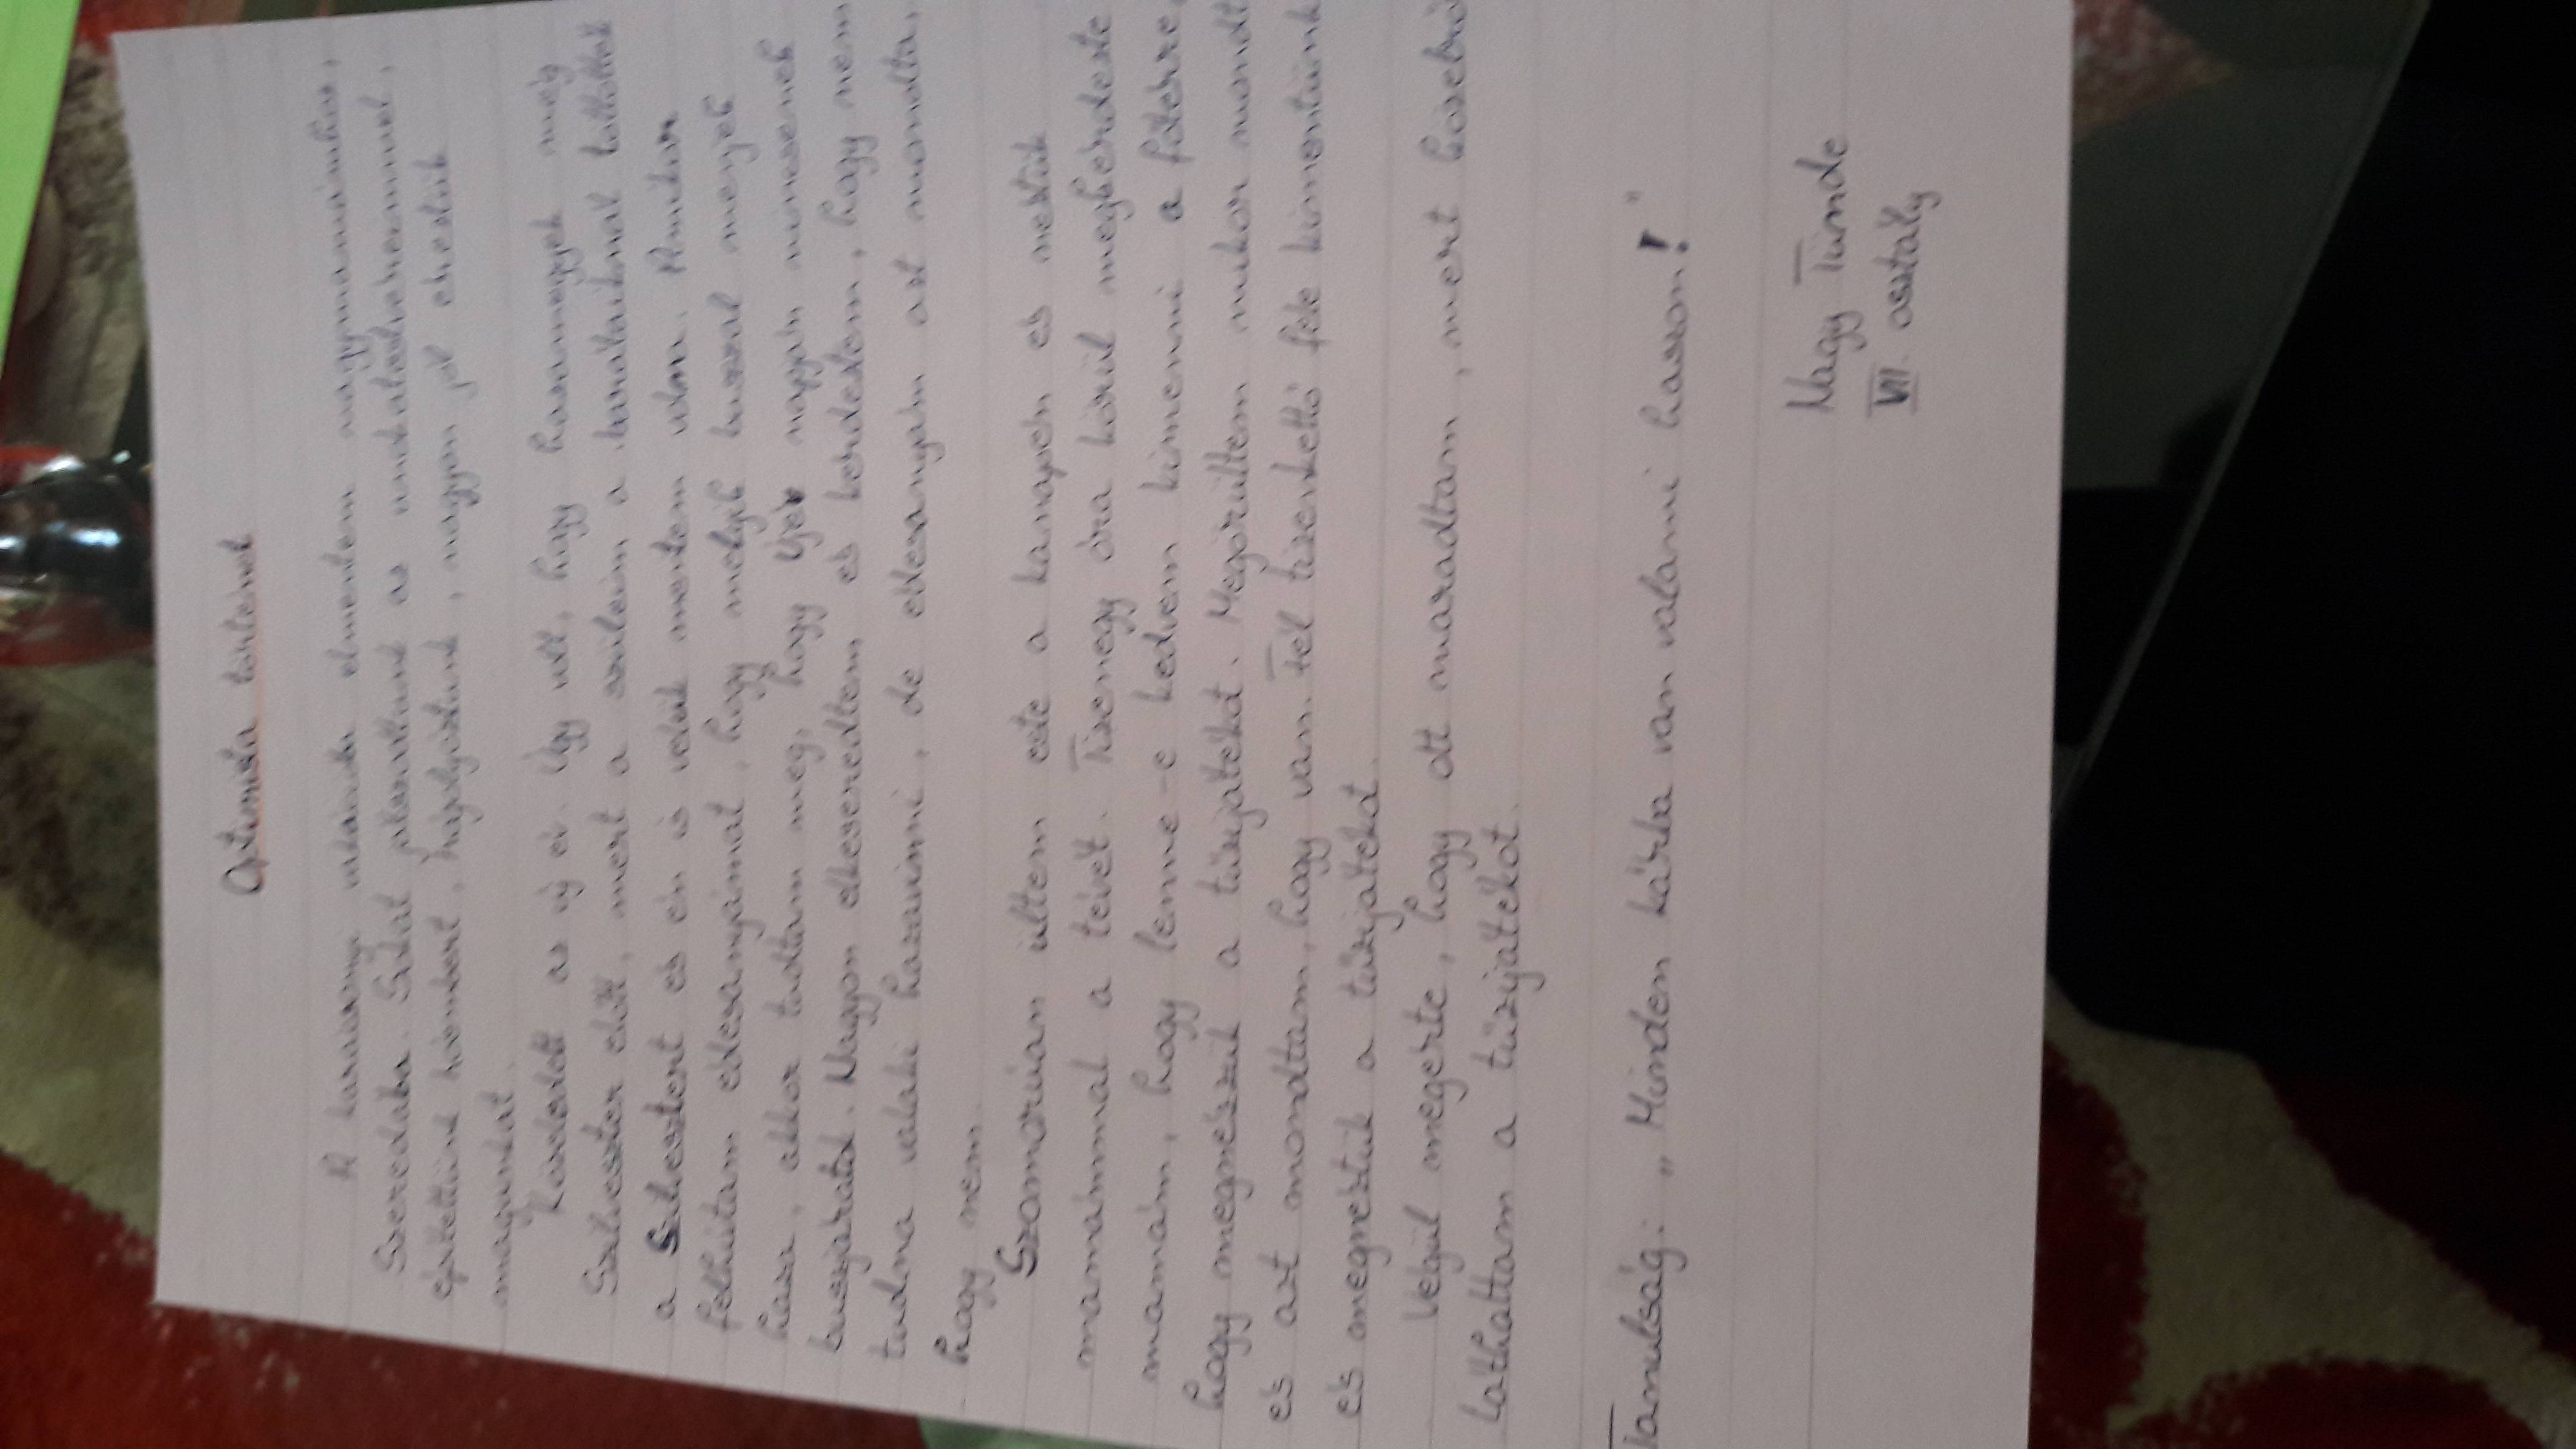 Optimista történet
A karácsonyi vakációba elmentem nagymamámhoz,
Szeredába. Sokat játszottunk az unokatestvéremmel,
építettünk hóembert, hógolyóztunk, nagyon jól éreztük
magunkat.
Közeledett az új év. Úgy volt, hogy hazamegyek még
Szilveszter előtt, mert a szüleim a barátaiknál töltötték
a Szilvesztert és én is velük mentem volna. Amikor
felhívtam édesanyámat, hogy melyik busszal menjek
haza, akkor tudtam meg, hogy újév napján nincsenek
buszjáratok. Nagyon elkeseredtem és kérdeztem, hogy nem
tudna valaki hazavinni, de édesanyám azt mondta,
hogy nem.
Szomorúan ültem este a kanapén és néztük
mamámmal a tévét. Tizenegy óra körül megkérdezte
mamám, hogy lenne-e kedvem kimenni a főtérre,
hogy megnézzük a tűzijátékot. Megörültem mikor mondta
és azt mondtam, hogy van. Fél tizenkettő fele kimentünk
és megnéztük a tűzijátékot.
Végül megérte, hogy ott maradtam, mert közelről
láthattam a tűzijátékot.
Tanulság: „Minden kárba van valami haszon!"
Nagy Tünde
VII. osztály